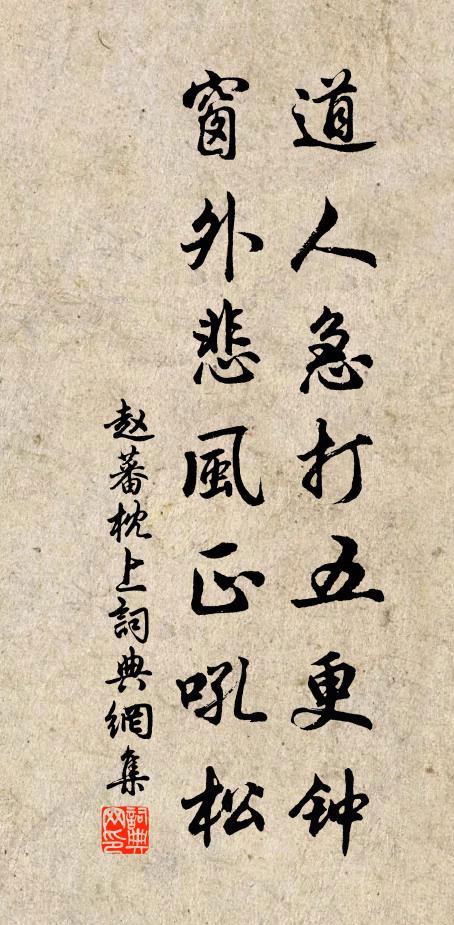 道人急打五更钟
窗外悲風正吼松
赵蕃枕上詞典網集
詞典网印